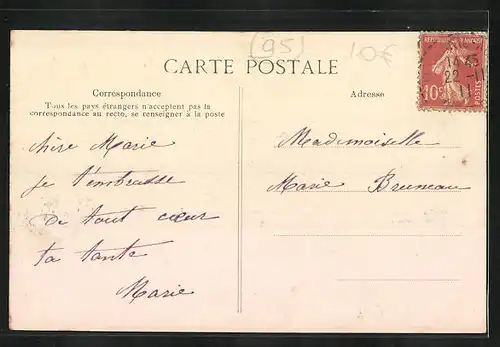 (95)
10€
CARTE POSTALE
Correspondance
Tous les pays étrangers n'acceptent pas la
correspondance au recto, se renseigner à la poste
Adresse
chère Marie
je t'embrasse
de tout cœur
ta tante
Marie
Mademoiselle
Marie Bruneau
REPUBLIQUE FRANCAISE
10c
POSTES
22 - 11